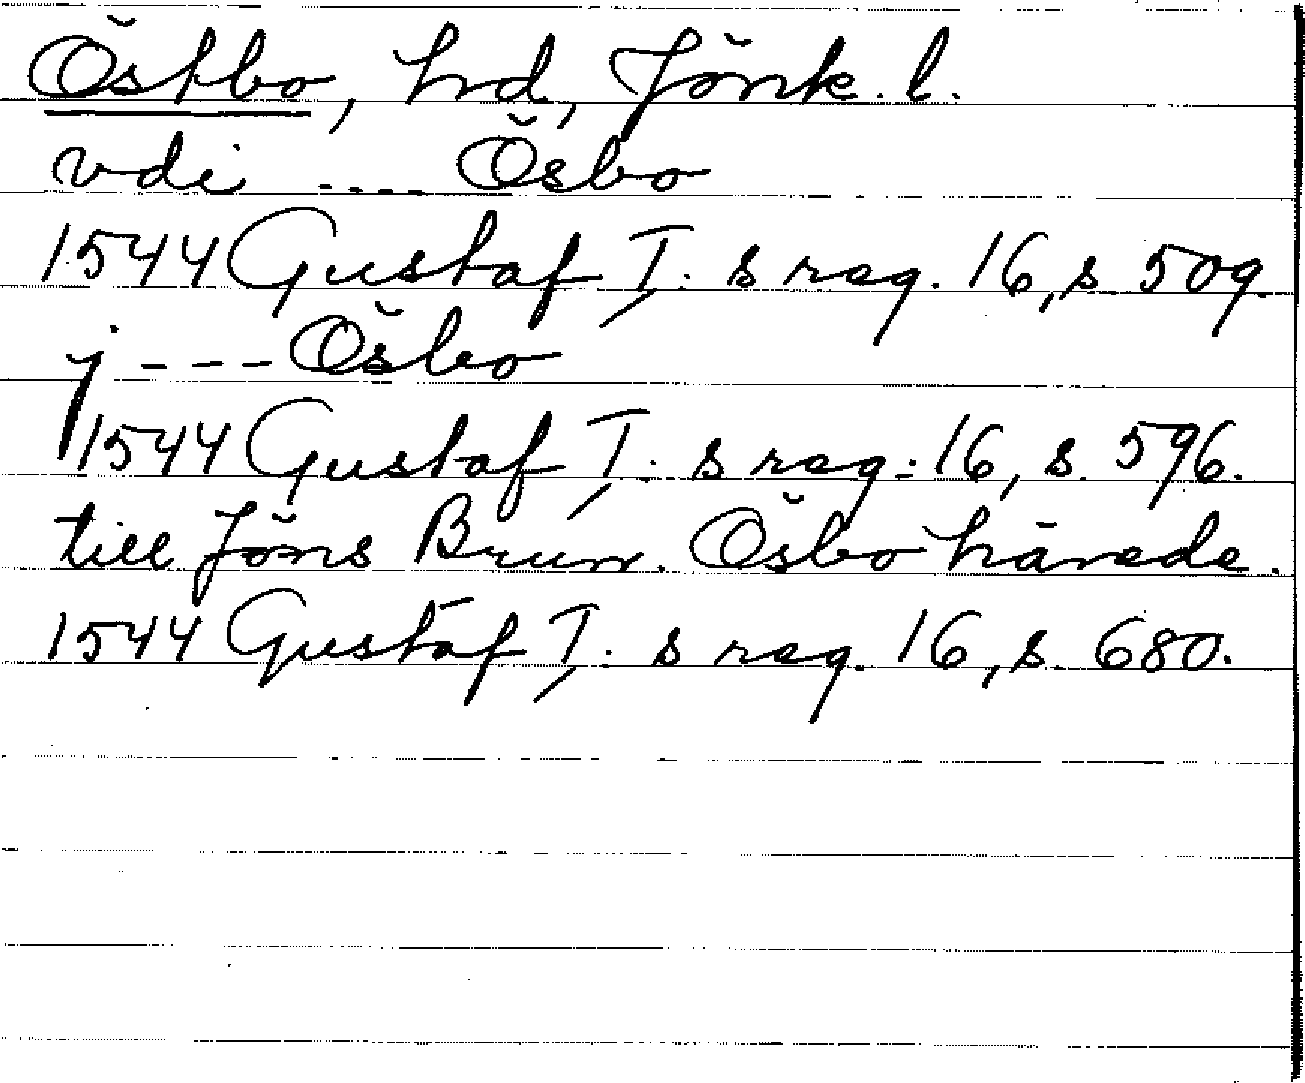 Östbo, hd, Jönk. l.
vdi .... Ösbo
1544 Gustaf I:s reg. 16, s 509.
j --- Ösbo
1544 Gustaf I:s reg. 16, s. 596.
till Jöns Brun. Ösbo härede.
1544 Gustaf I:s reg. 16, s. 680.